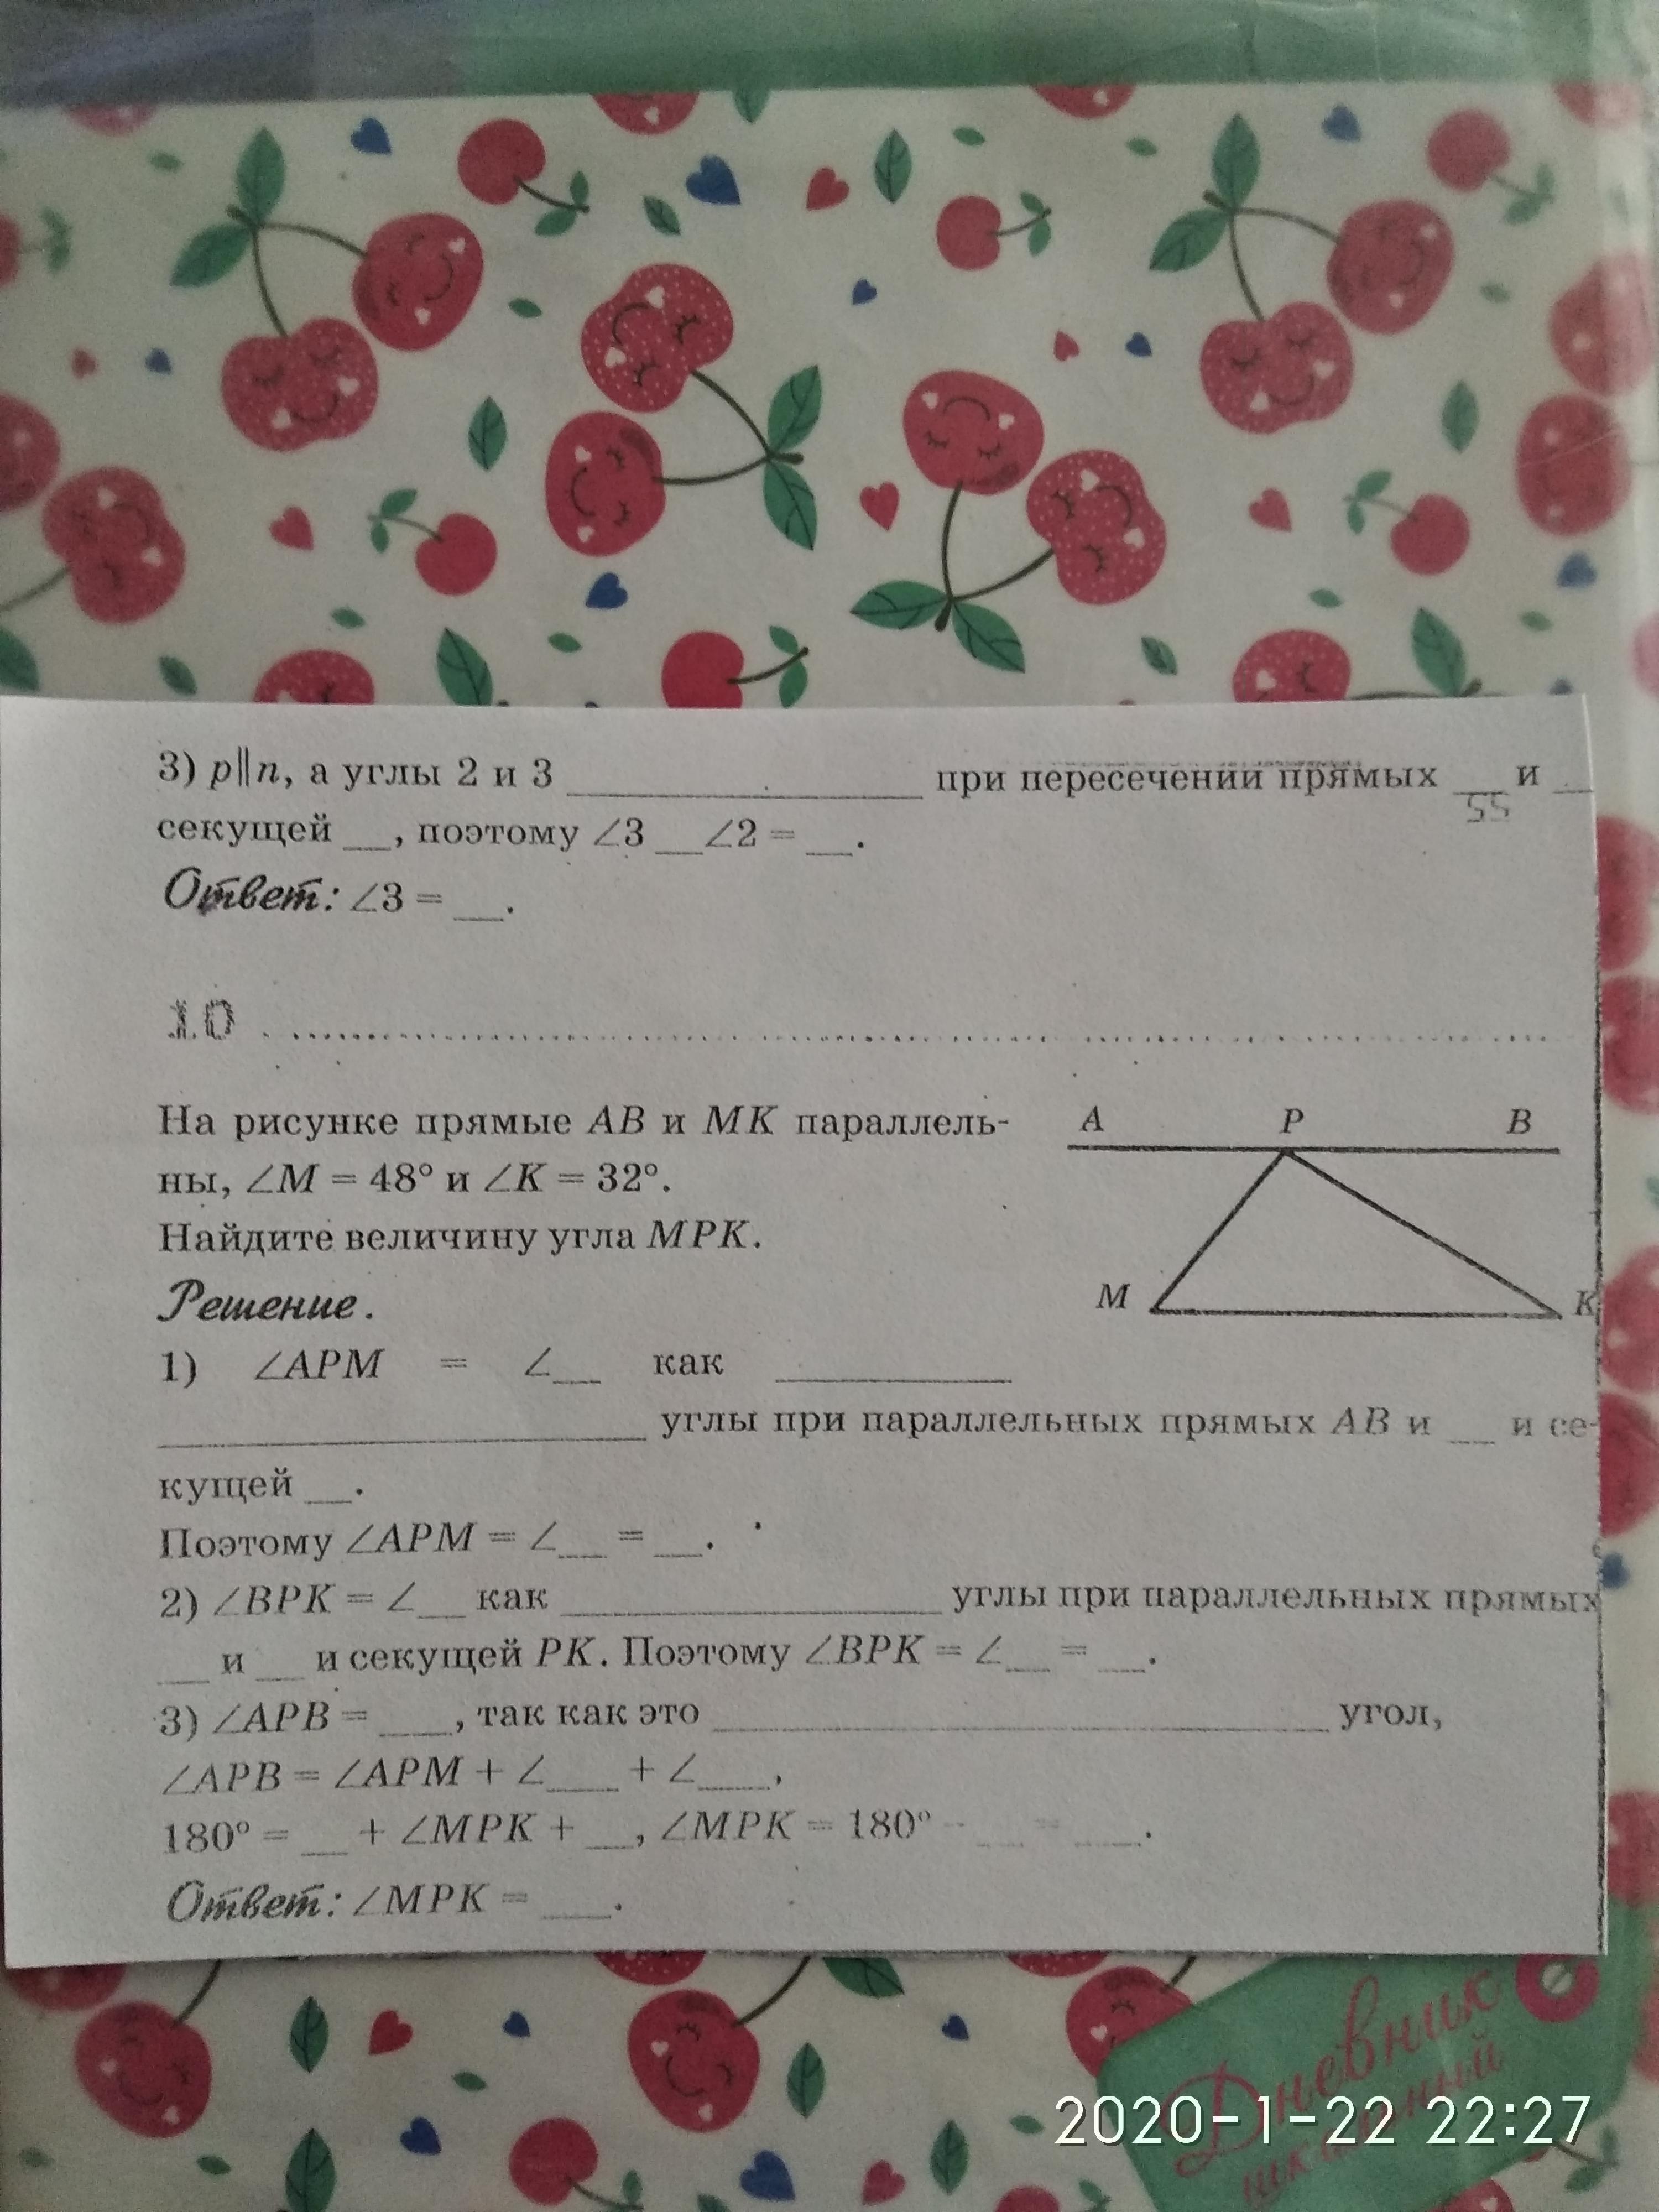 3) p∥n, а углы 2 и 3 ____________ при пересечении прямых __ и __
55
секущей __, поэтому ∠3 __ ∠2 = __.
Ответ: ∠3 = __.
10
На рисунке прямые AB и MK параллель-
ны, ∠M = 48° и ∠K = 32°.
Найдите величину угла MPK.
A P B
M K
Решение.
1) ∠APM = ∠__ как ________
________________ углы при параллельных прямых AB и __ и се-
кущей __.
Поэтому ∠APM = ∠__ = __.
2) ∠BPK = ∠__ как ____________ углы при параллельных прямых
__ и __ и секущей PK. Поэтому ∠BPK = ∠__ = __.
3) ∠APB = ___, так как это ____________________ угол,
∠APB = ∠APM + ∠___ + ∠___,
180° = __ + ∠MPK + __, ∠MPK = 180° - __ = ___.
Ответ: ∠MPK = ___.
Дневник
школьный
2020-1-22 22:27